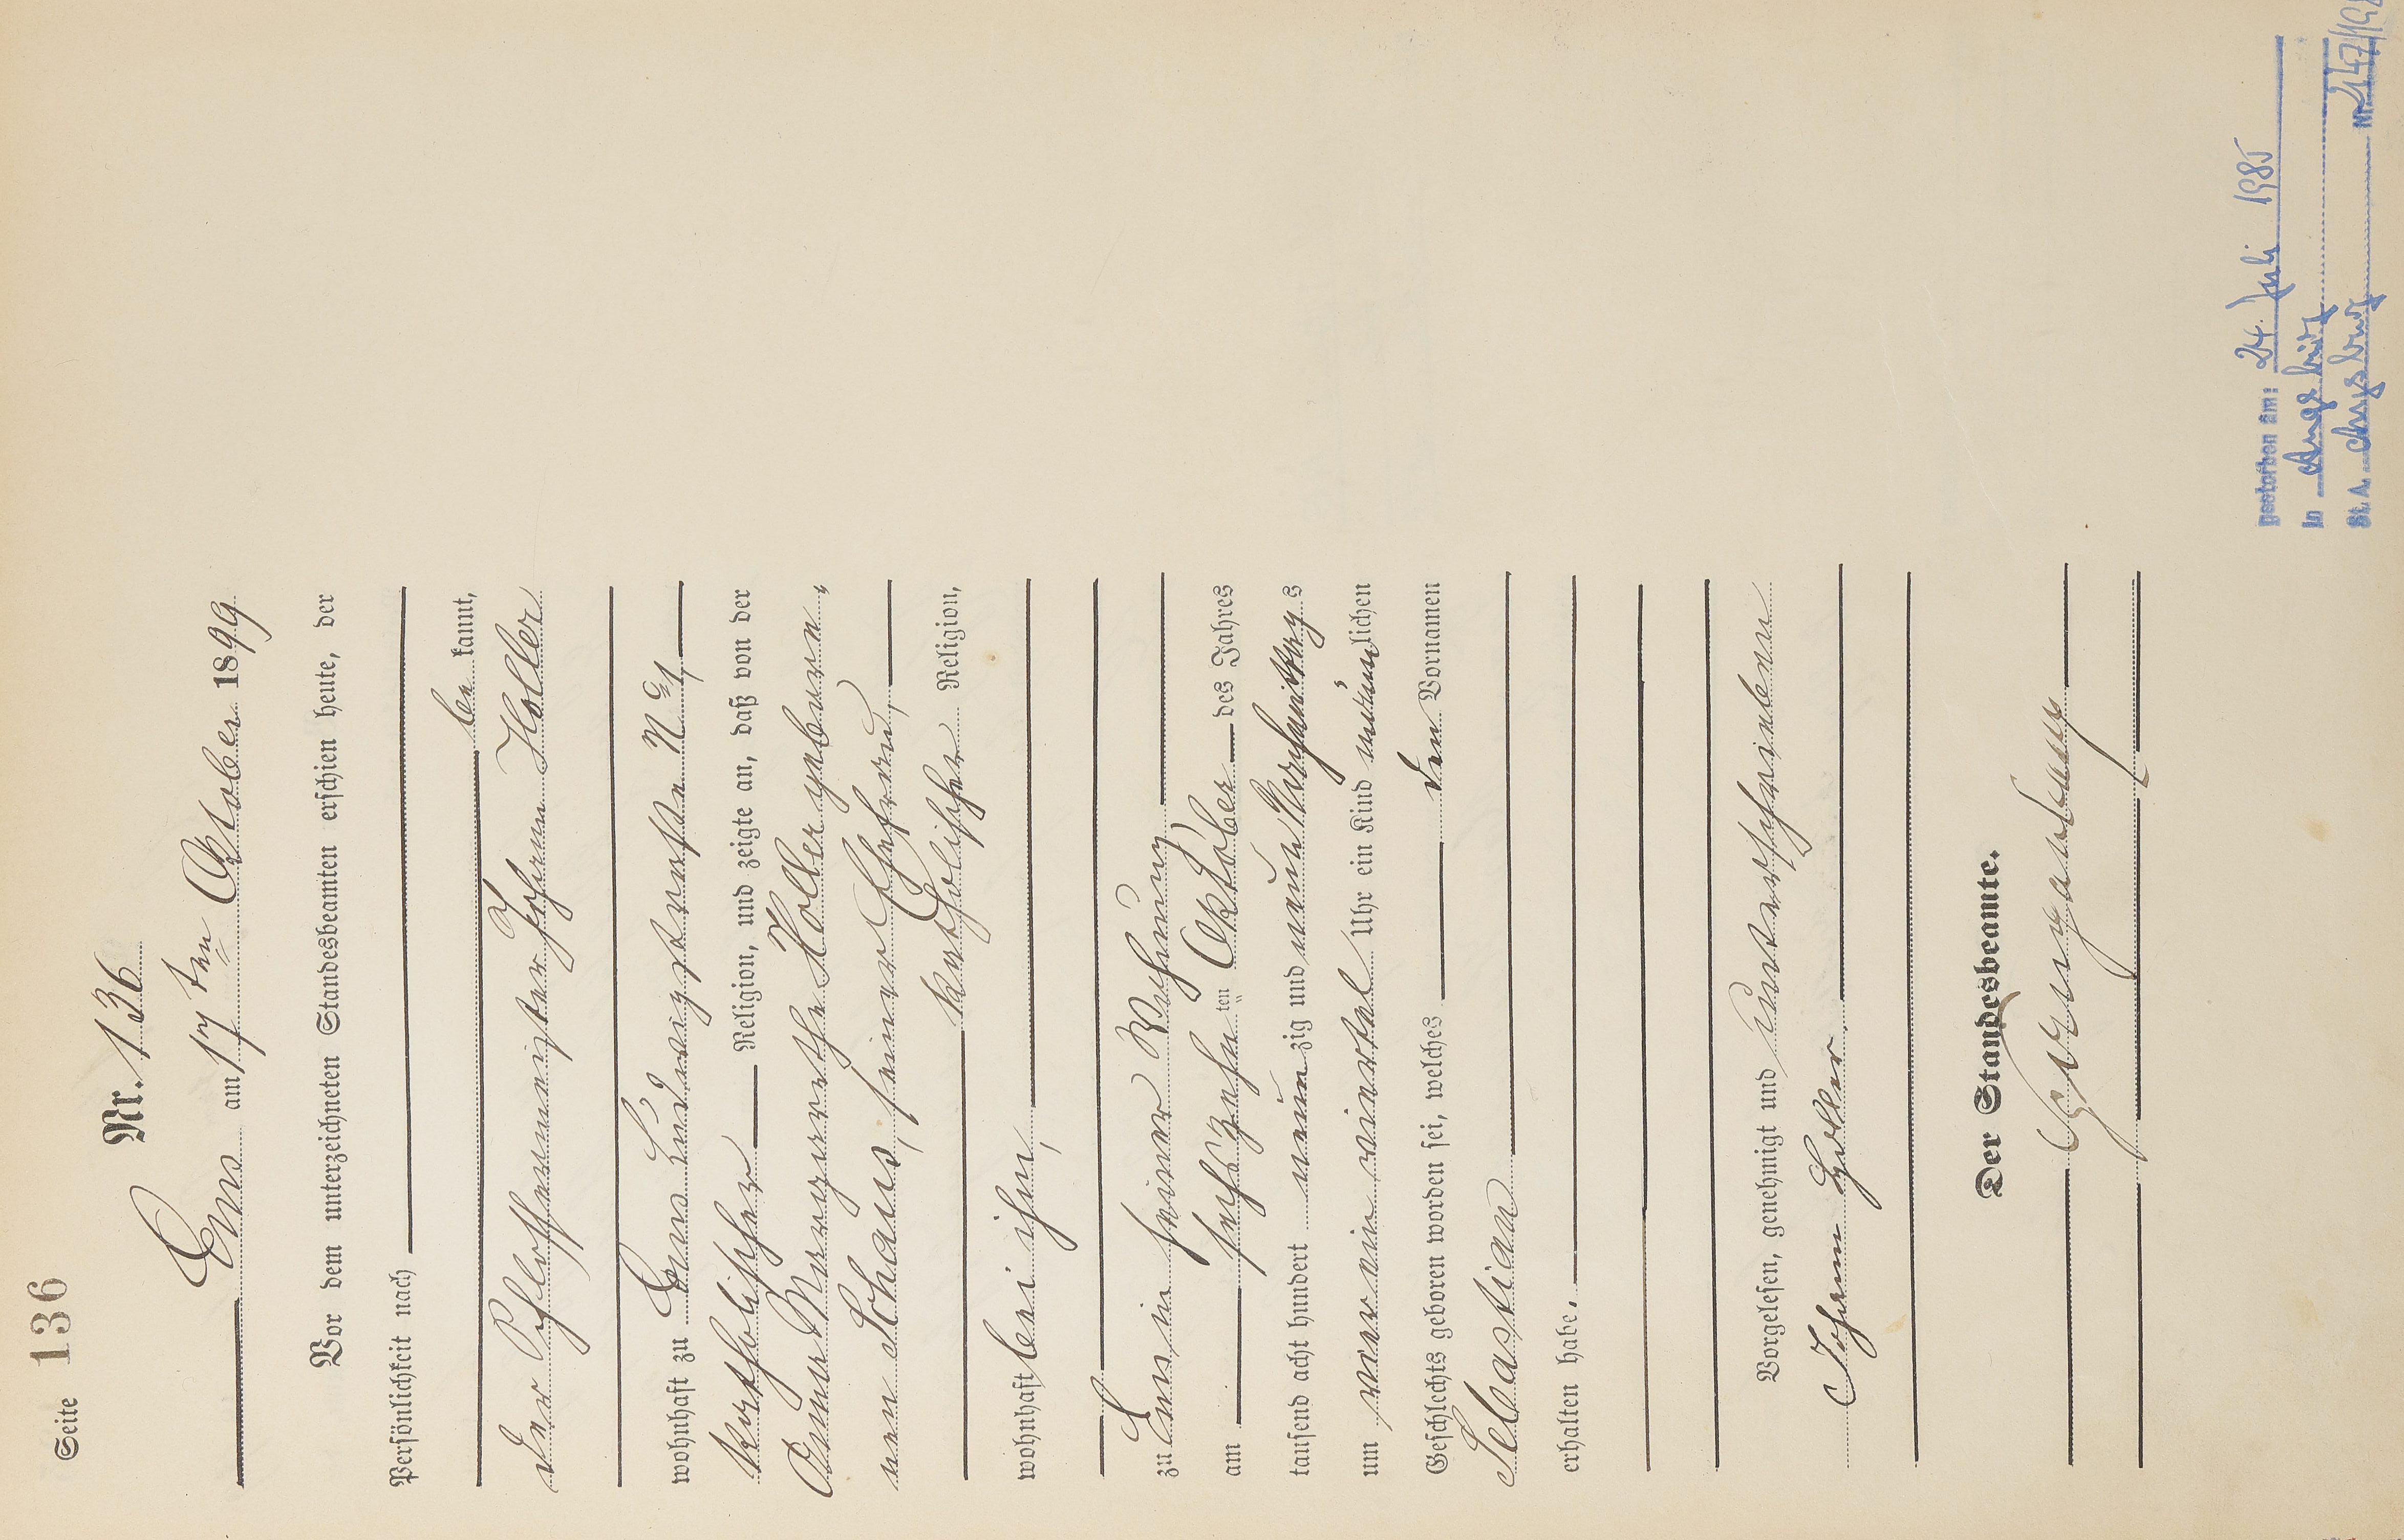 Seite 136
Nr. 136
Ems am 17ten Oktober 1899
Vor dem unterzeichneten Standesbeamten erschien heute, der
Persönlichkeit nach
be kannt,
der Schlossermeister Johann Holler
wohnhaft zu Ems
katholischer Religion, und zeigte an, daß von der
Anna Margarethe Holler gebore-
nen Schaus, seiner Ehefrau,
katholischer Religion,
wohnhaft bei ihm,
zu Ems in seiner Wohnung
am sechszehnten Oktober des Jahres
tausend acht hundert neunzig und neun Nachmittags
um Uhr ein Kind männlichen
Geschlechts geboren worden sei, welches den Vornamen
Sebastian
erhalten habe.
Vorgelesen, genehmigt und unterschrieben
Johann Holler.
Der Standesbeamte.
gestorben am: 24. Juli 1985
in Augsburg
St.A. Augsburg Nr.